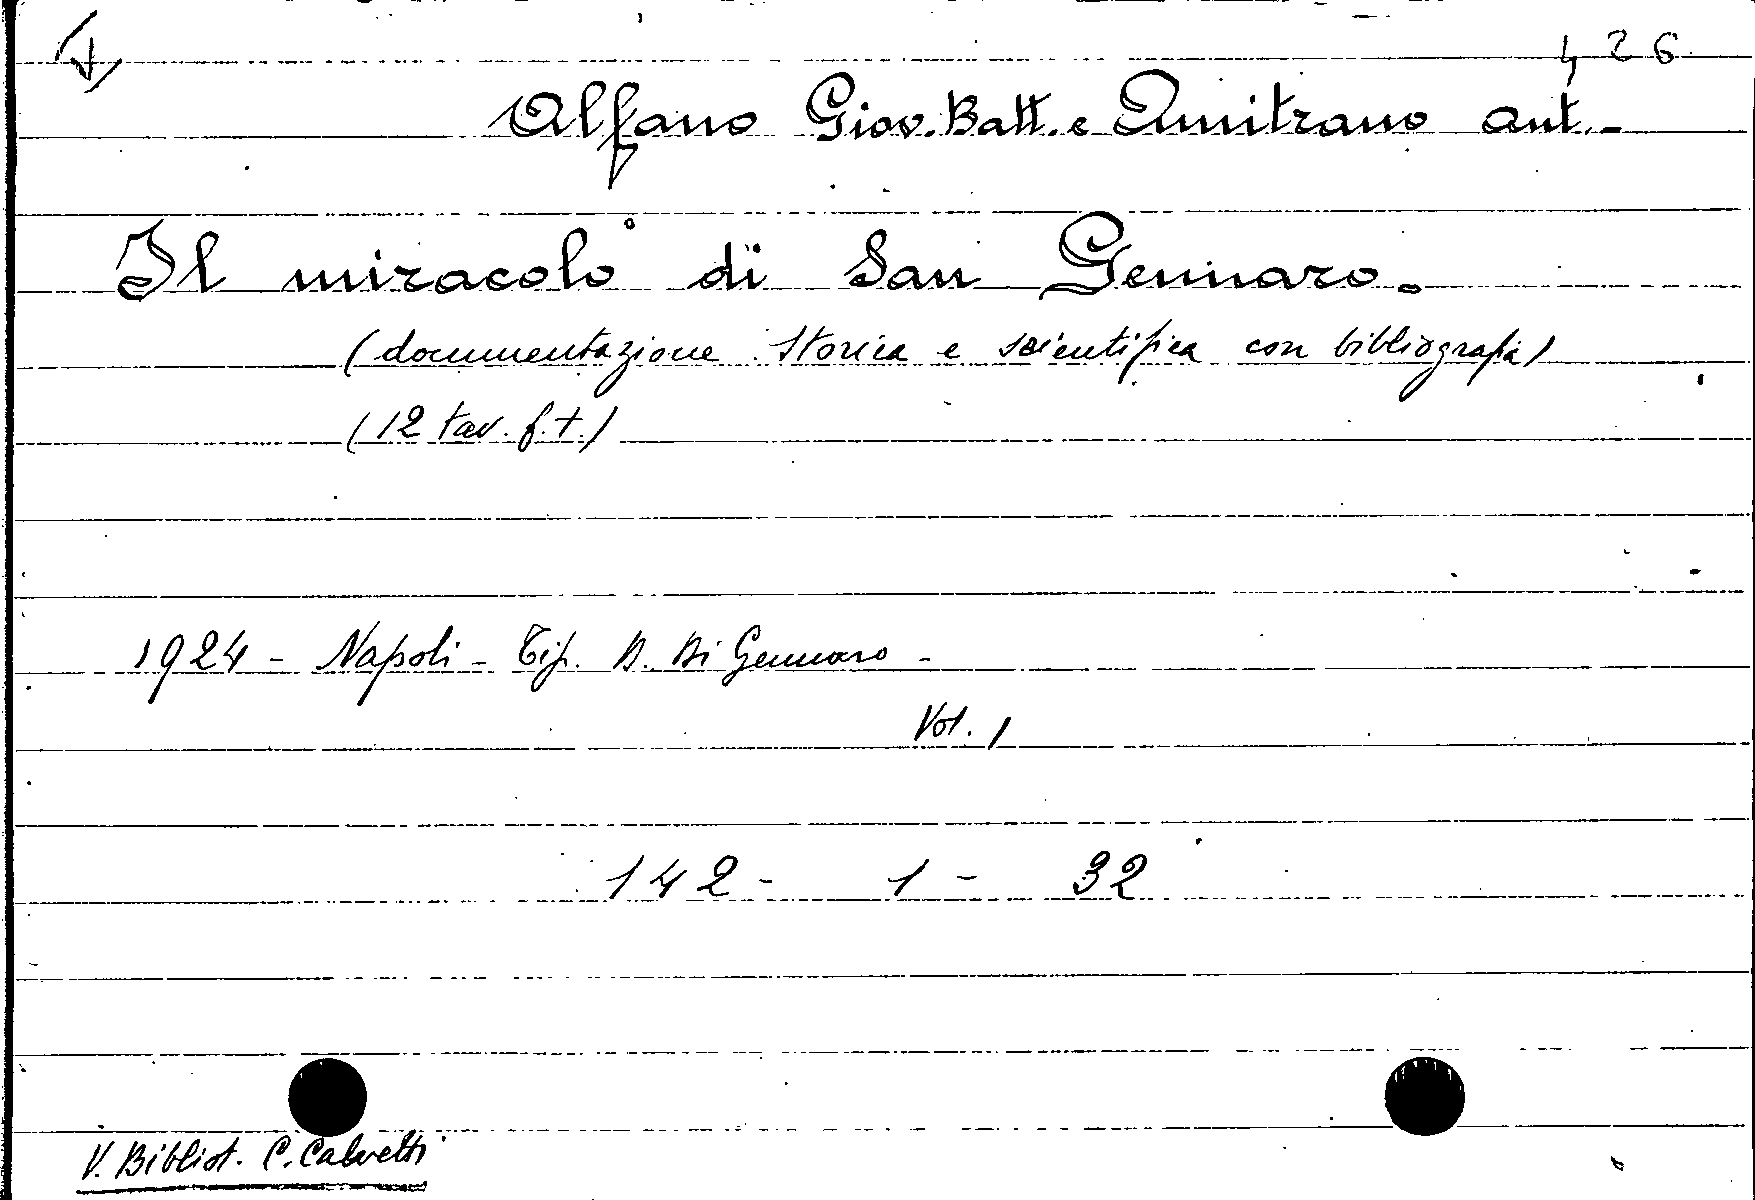 426
Alfano Giov. Batt. e Amitrano Ant.-
Il miracolo di San Gennaro.
(documentazione storica e scientifica con bibliografia)
(12 tav. f.t.)
1924 - Napoli - Tip. D. Di Gennaro -
Vol. 1
142 - 1 - 32
V. Bibliot. C. Calvetti